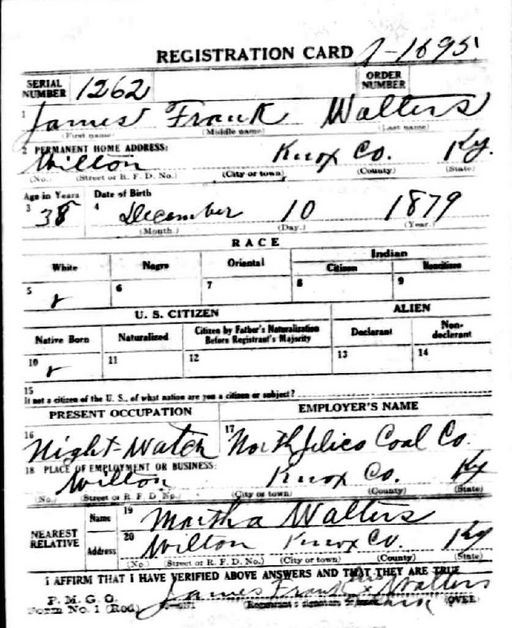 REGISTRATION CARD 1-1895
SERIAL NUMBER 1262 ORDER NUMBER
1 James Frank Walters
(First name) (Middle name) (Last name)
2 PERMANENT HOME ADDRESS:
Wilton Knox Co. Ky.
(No.) (Street or R. F. D. No.) (City or town) (County) (State)
Age in Years Date of Birth
3 38 4 December 10 1879
(Month.) (Day.) (Year.)
RACE
White Negro Oriental Indian
Citizen Noncitizen
5 6 7 8 9
U. S. CITIZEN ALIEN
Native Born Naturalized Citizen by Father's Naturalization Before Registrant's Majority Declarant Non-declarant
10 11 12 13 14
15
If not a citizen of the U. S., of what nation are you a citizen or subject?
PRESENT OCCUPATION EMPLOYER'S NAME
16 Night-Watch 17 North Jelico Coal Co.
18 PLACE OF EMPLOYMENT OR BUSINESS:
Wilton Knox Co. Ky
(No.) (Street or R. F. D. No.) (City or town) (County) (State)
NEAREST RELATIVE Name 19 Martha Walters
Address 20 Wilton Knox Co. Ky
(No.) (Street or R. F. D. No.) (City or town) (County) (State)
I AFFIRM THAT I HAVE VERIFIED ABOVE ANSWERS AND THAT THEY ARE TRUE
P. M. G. O.
Form No. 1 (Red) James Frank Walters
(Registrant's signature or mark) (OVER)